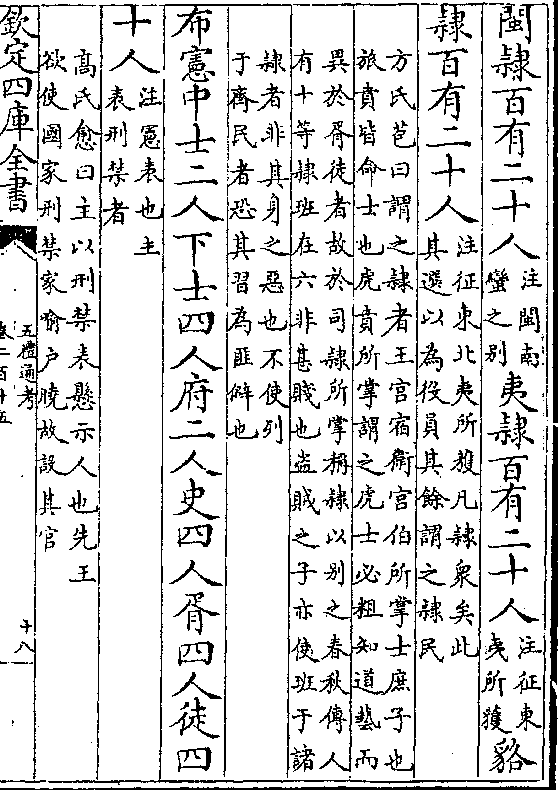 閩隸百有二十人注閩南蠻之別夷隸百有二十人注征東夷所獲貉
隸百有二十人注征東北夷所獲凡隸衆矣此其選以為役員其餘謂之隸民
方氏苞曰謂之隸者王宮宿衛宮伯所掌士庶子也
旅賁皆命士也虎賁所掌謂之虎士必粗知道藝而
異於胥徒者故於司隸所掌稱隸以别之春秋傳人
有十等隸班在六非甚賤也盗賊之子亦使班于諸
隸者非其身之惡也不使列
于齊民者恐其習為匪僻也
布憲中士二人下士四人府二人史四人胥四人徒四
十人注憲表也主表刑禁者
高氏愈曰主以刑禁表懸示人也先王
欲使國家刑禁家喻户曉故設其官
欽定四庫全書
五禮通考
卷二百十五
十八